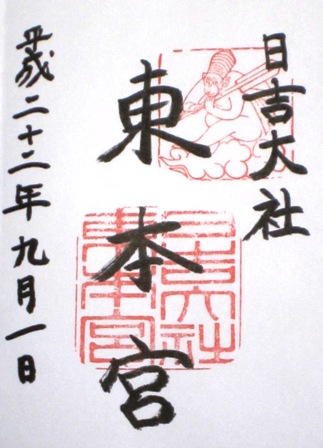 日吉大社
東本宮
平成二十二年九月一日
日吉大社
東本宮